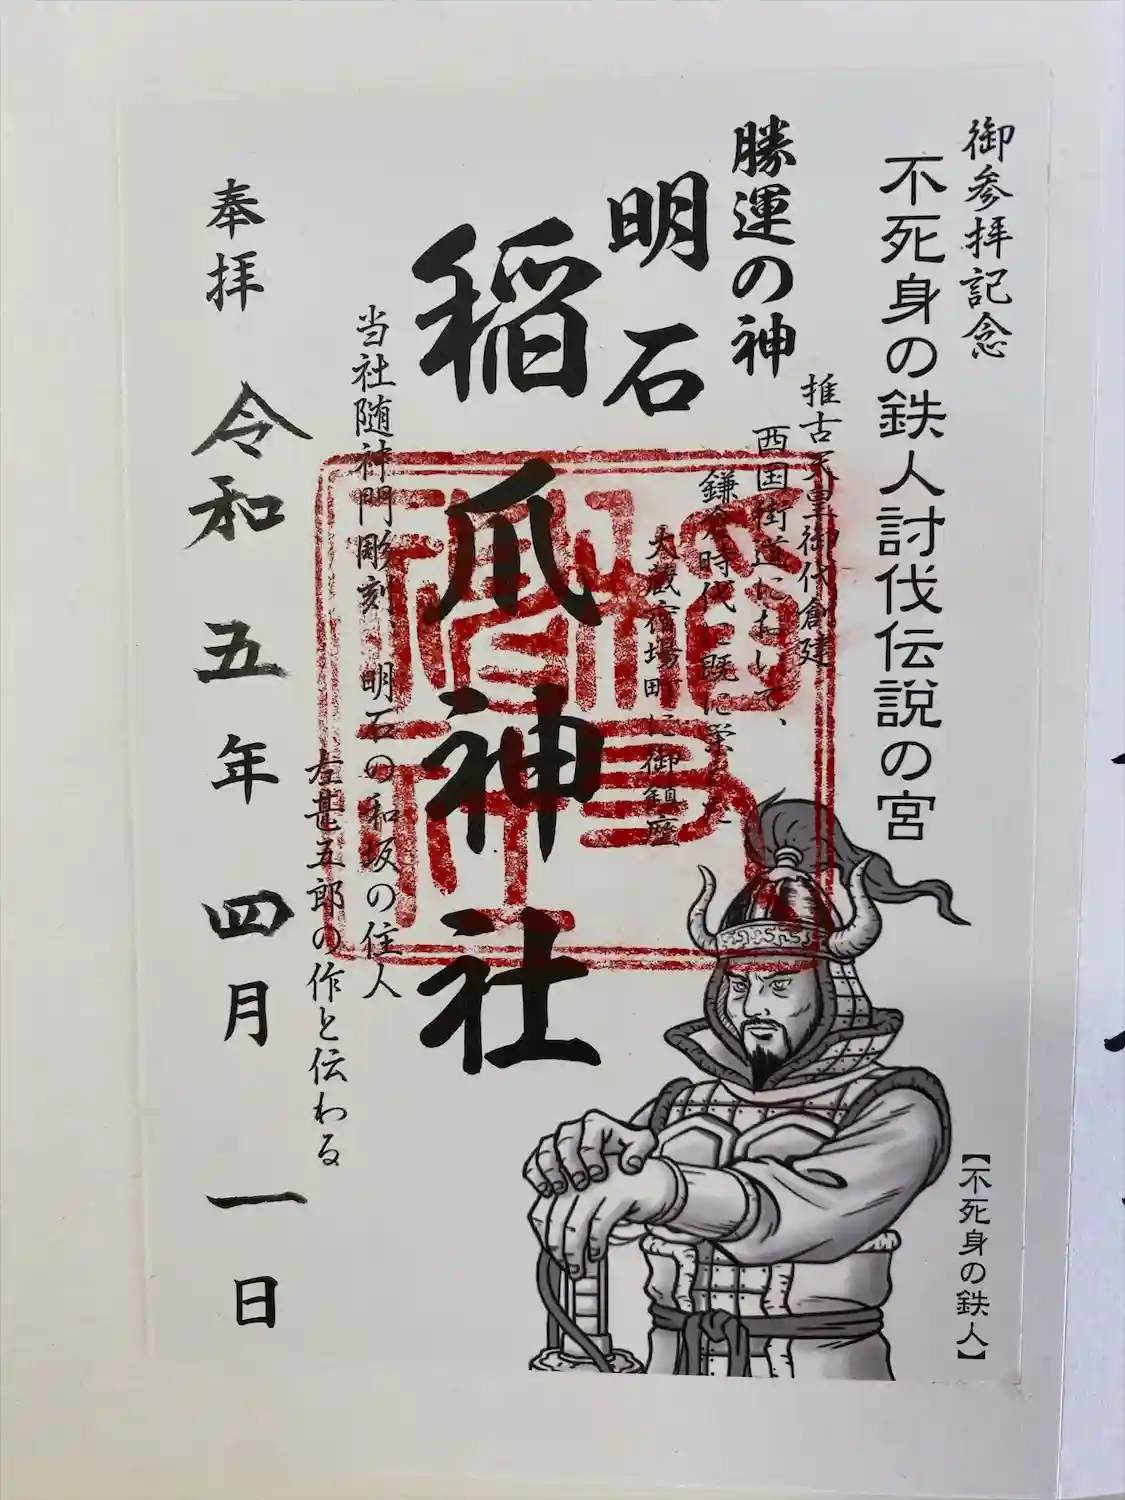 御参拝記念
不死身の鉄人討伐伝説の宮
推古天皇御代創建
西国街道において、
鎌倉時代に既に栄えた
大蔵宿場町に御鎮座
勝運の神
明石
稲爪神社
当社随神門彫刻 明石の和坂の住人
左甚五郎の作と伝わる
奉拝 令和五年四月一日
【不死身の鉄人】